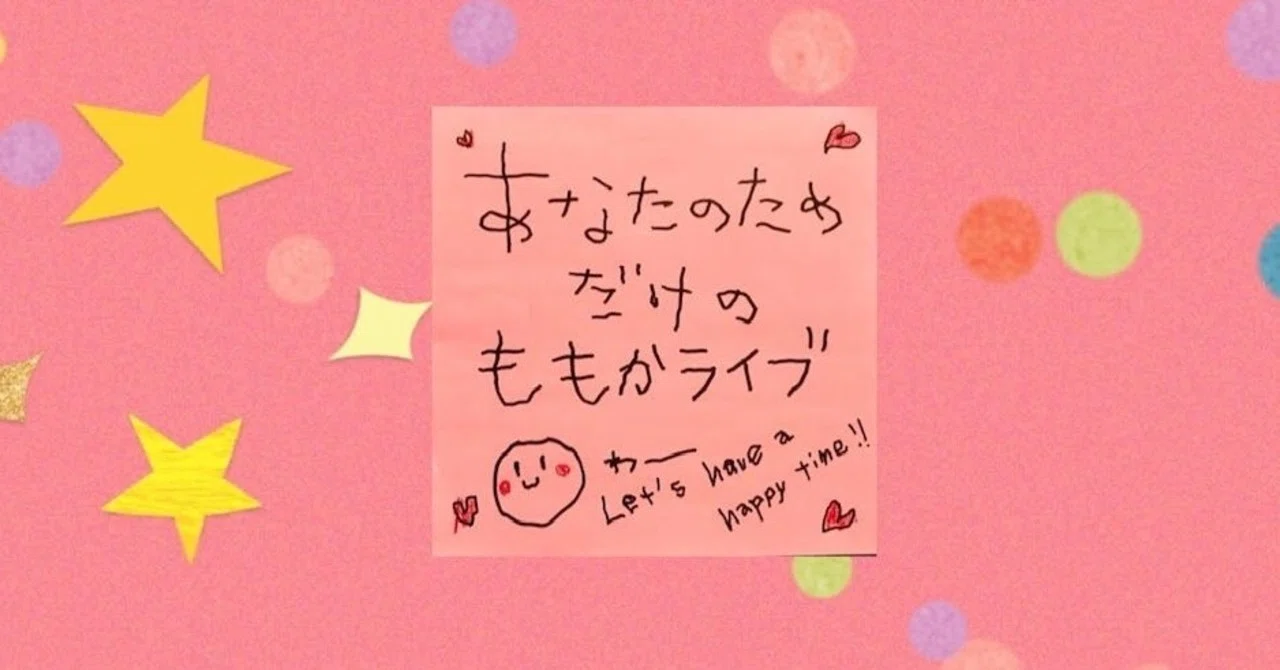 あなたのため
だけの
ももかライブ
わー
Let's have a
happy time!!